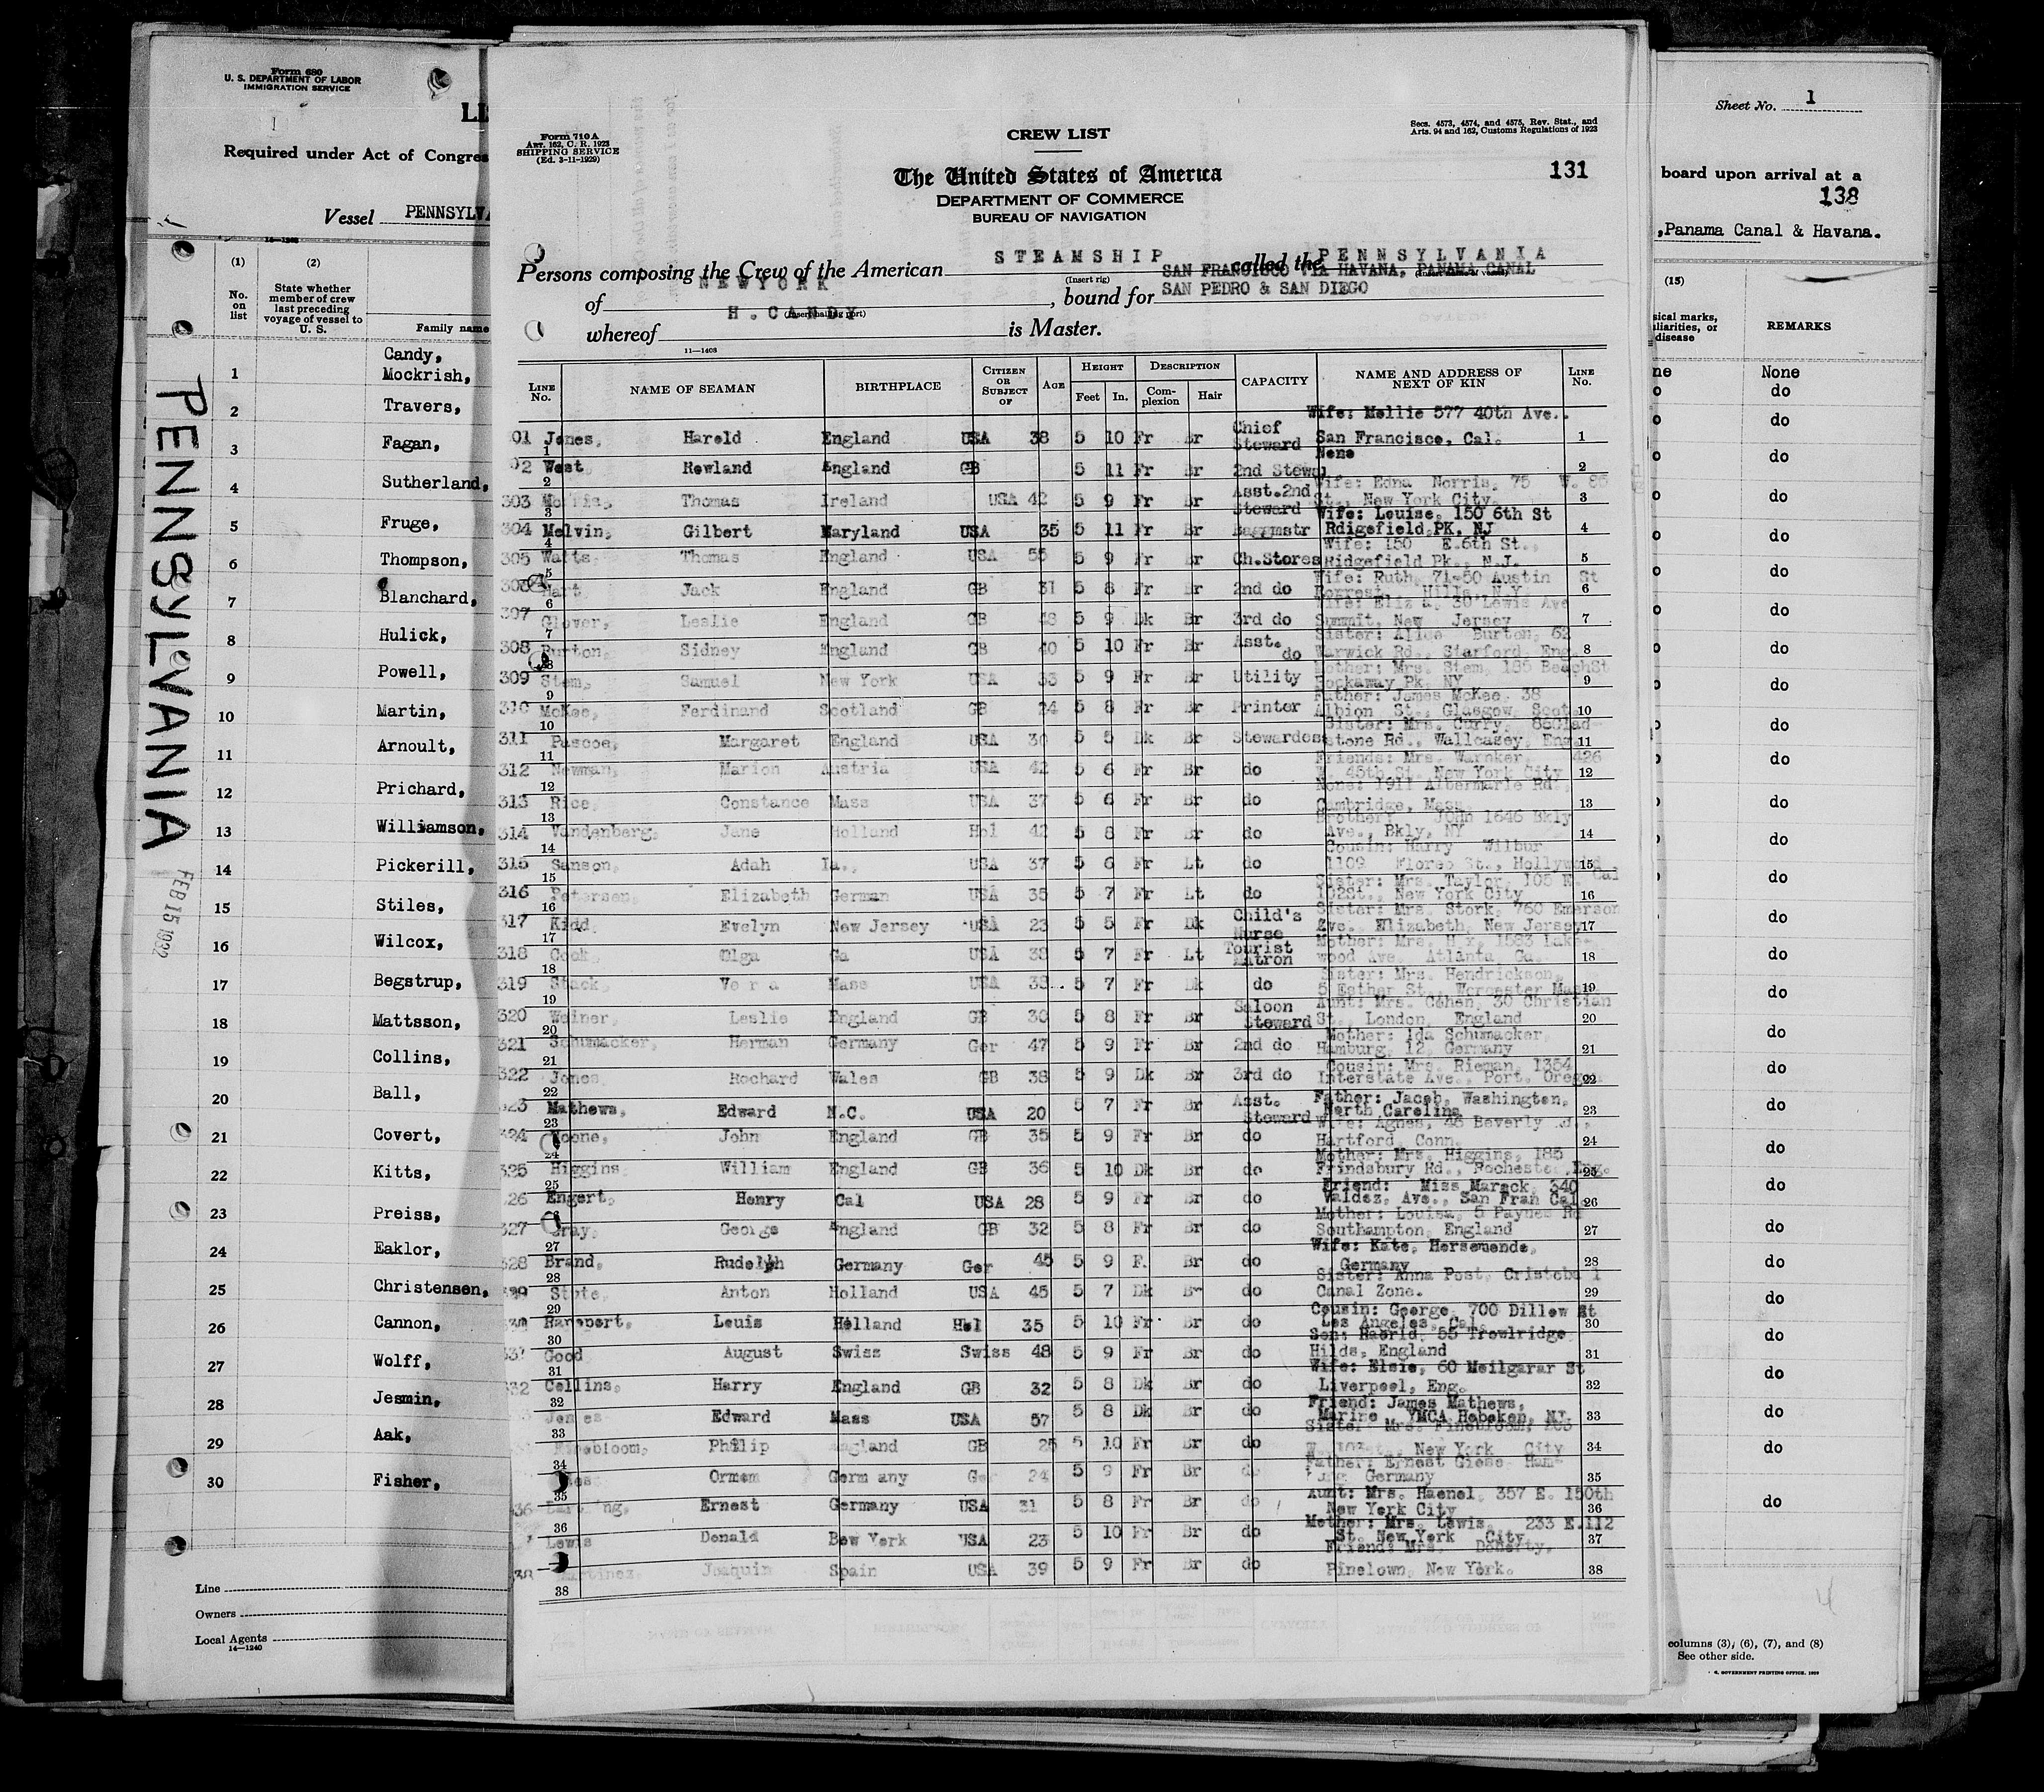 Form 680
U. S. DEPARTMENT OF LABOR
IMMIGRATION SERVICE
Required under Act of Congres
Vessel PENNSYLVA
(1) (2)
No. on list
State whether member of crew last preceding voyage of vessel to U. S.
Family name
Candy,
1 Mockrish,
2 Travers,
3 Fagan,
4 Sutherland,
5 Fruge,
6 Thompson,
7 Blanchard,
8 Hulick,
9 Powell,
10 Martin,
11 Arnoult,
12 Prichard,
13 Williamson,
14 Pickerill,
15 Stiles,
16 Wilcox,
17 Begstrup,
18 Mattsson,
19 Collins,
20 Ball,
21 Covert,
22 Kitts,
23 Preiss,
24 Eaklor,
25 Christensen,
26 Cannon,
27 Wolff,
28 Jesmin,
29 Aak,
30 Fisher,
Line
Owners
Local Agents
14—1240
PENNSYLVANIA
FEB 15 1932
Form 710 A
ART. 162, C. R. 1923
SHIPPING SERVICE
(Ed. 3-11-1929)
CREW LIST
Secs. 4573, 4574, and 4575, Rev. Stat., and
Arts. 94 and 162, Customs Regulations of 1923
The United States of America
131
DEPARTMENT OF COMMERCE
BUREAU OF NAVIGATION
Persons composing the Crew of the American STEAMSHIP called the PENNSYLVANIA
(Insert rig)
of NEWYORK, bound for SAN FRANCISCO VIA HAVANA, PANAMA CANAL
SAN PEDRO & SAN DIEGO
whereof H. CANDY is Master.
11—1408
LINE No. NAME OF SEAMAN BIRTHPLACE CITIZEN OR SUBJECT OF AGE HEIGHT Feet In. DESCRIPTION Complexion Hair CAPACITY NAME AND ADDRESS OF NEXT OF KIN LINE No.
01 Jones, Harold England USA 38 5 10 Fr Br Chief Steward Wife: Mollie 577 40th Ave. San Francisco, Cal. 1
02 West Rowland England GB 5 11 Fr Br 2nd Stewd None 2
303 Thomas Ireland USA 42 5 9 Fr Br Asst. 2nd Steward Wife: Edna Norris, 75 W. 85 St., New York City. 3
304 Melvin, Gilbert Maryland USA 35 5 11 Fr Br Baggmstr Wife: Louise, 150 6th St Rdigefield PK, NJ 4
305 Watts, Thomas England USA 55 5 9 Fr Br Ch.Stores Wife: 150 E.6th St., Ridgefield Pk., N.J. 5
306 Hart Jack England GB 31 5 8 Fr Br 2nd do Wife: Ruth, 71-50 Austin St Forrest Hills, N.Y. 6
307 Glover, Leslie England GB 48 5 9 Dk Br 3rd do Wife: Eliz a, 30 Lewis Ave Summit, New Jersey 7
308 Burton, Sidney England GB 40 5 10 Fr Br Asst. do Sister: Alice Burton, 62 Warwick Rd., Stanford, Eng. 8
309 Stem, Samuel New York USA 33 5 9 Fr Br Utility Mother: Mrs. Stem, 185 BeachSt Rockaway Pk. NY 9
310 McKee, Ferdinand Scotland GB 24 5 8 Fr Br Printer Father: James McKee, 38 Albion St., Glasgow, Scot 10
311 Pascoe, Margaret England USA 30 5 5 Dk Br Stewardes Sister: Mrs. Curry, 86Glad- stone Rd., Wallcasey, Eng. 11
312 Newman, Marion Austria USA 42 5 6 Fr Br do Friends: Mrs. Warnker, 426 W. 45th St. New York City 12
313 Rice, Constance Mass USA 37 5 6 Fr Br do None: 1911 Albermarle Rd., Cambridge, Mass 13
314 Vandenberg, Jane Holland Hol 42 5 8 Fr Br do Brother: John 1646 Bkly Ave., Bkly, NY 14
315 Sanson, Adah Ia., USA 37 5 6 Fr Lt do Cousin: Harry Wilbur 1109 Flores St., Hollywood, Cal 15
316 Petersen, Elizabeth German USA 35 5 7 Fr Lt do Sister: Mrs. Taylor, 105 E. 102St., New York City 16
317 Kidd, Evelyn New Jersey USA 23 5 5 Fr Dk Child's Nurse Sister: Mrs. Stork, 760 Emerson Ave. Elizabeth, New Jersey 17
318 Cook, Olga Ga USA 38 5 7 Fr Lt Tourist Matron Mother: Mrs. 1583 Lake- wood Ave. Atlanta, Ga. 18
319 Stack, Ve r a Mass USA 38 5 7 Fr Dk do Sister: Mrs. Hendrickson, 5 Esther St., Worcester Mass 19
320 Weiner, Leslie England GB 30 5 8 Fr Br Saloon Steward Aunt: Mrs. Cohen, 30 Christian St., London, England 20
321 Schumacker, Herman Germany Ger 47 5 9 Fr Br 2nd do Mother: Ida Schumacker, Hamburg, 12, Germany 21
322 Jones, Rochard Wales GB 38 5 9 Dk Br 3rd do Cousin: Mrs. Rieman, 1354 Interstate Ave., Port. Oregon 22
323 Mathews, Edward N.C. USA 20 5 7 Fr Br Asst. Steward Father: Jacob, Washington, North Carolina 23
324 John England GB 35 5 9 Fr Br do Wife: Agnes, 48 Beverly Rd., Hartford, Conn. 24
325 Higgins William England GB 36 5 10 Dk Br do Mother: Mrs. Higgins, 185 Frindsbury Rd., Rochester, Eng. 25
326 Engert, Henry Cal USA 28 5 9 Fr Br do Friend: Miss Mareck, 340 Valdez, Ave., San Fran Cal 26
327 Gray, George England GB 32 5 8 Fr Br do Mother: Louisa, 5 Paynes Rd Southampton, England 27
328 Brand, Rudolph Germany Ger 45 5 9 F. Br do Wife: Kate, Hersemende, Germany 28
329 Anton Holland USA 45 5 7 Dk Br do Sister: Anna Post, Cristoba l Canal Zone. 29
330 Rapoport, Louis Holland Hol 35 5 10 Fr Br do Cousin: George, 700 Dillow St Los Angeles, Cal. 30
331 Good August Swiss Swiss 48 5 9 Fr Br do Son: Haorld, 55 Trowlridge Hilds, England 31
332 Collins, Harry England GB 32 5 8 Dk Br do Wife: Elsie, 60 Meilgarar St Liverpool, Eng. 32
Jones Edward Mass USA 57 5 8 Dk Br do Friend: James Mathews, Marine YMCA Hoboken, NJ 33
Finebloom, Philip England GB 25 5 10 Fr Br do Sister Mrs. Finebloom, New York City 34
Ormem Germ any Ge 24 5 9 Fr Br do Father: Ernest Giese Ham- burg Germany 35
36 Ernest Germany USA 31 5 8 Fr Br do Aunt: Mrs. Haenel, 357 E. 150th New York City 36
Lewis Donald Bew York USA 23 5 10 Fr Br do Mother: Mrs. Lewis, 233 E.112 St. New York City 37
38 Martinez Joaquin Spain USA 39 5 9 Fr Br do Friend: Mrs. Doherty, Pinelown, New York. 38
Sheet No. 1
board upon arrival at a
138
,Panama Canal & Havana.
(15)
sical marks,
uliarities, or
disease
REMARKS
ne None
do
do
do
do
do
do
do
do
do
do
do
do
do
do
do
do
do
do
do
do
do
do
do
do
do
do
do
do
do
do
columns (3), (6), (7), and (8)
See other side.
GOVERNMENT PRINTING OFFICE